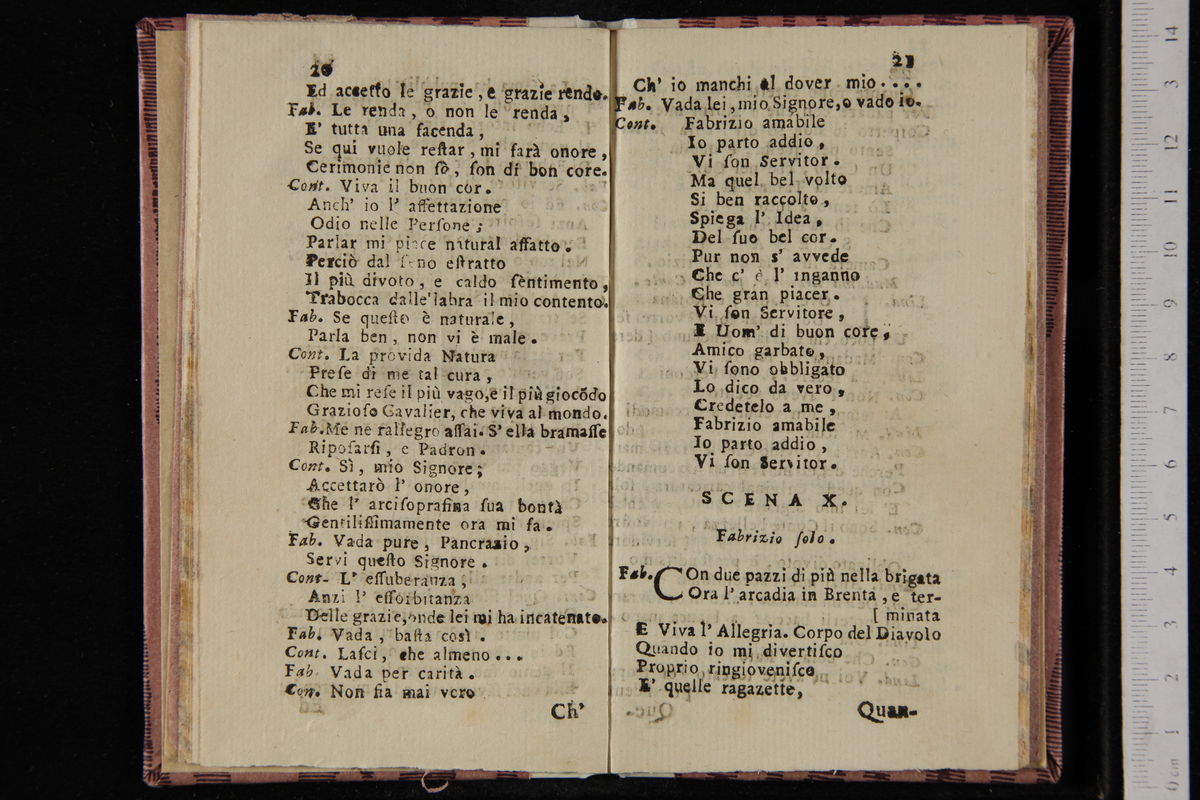 20
Ed accetto le grazie, e grazie rendo.
Fab. Le renda, o non le renda,
E' tutta una facenda,
Se qui vuole reſtar, mi farà onore,
Cerimonie non ſò, ſon di bon core.
Cont. Viva il buon cor.
Anch' io l' affettazione
Odio nelle Perſone;
Parlar mi piace natural affatto.
Perciò dal ſeno eſtratto
Il più divoto, e caldo ſentimento,
Trabocca dalle'labra il mio contento.
Fab. Se queſto è naturale,
Parla ben, non vi è male.
Cont. La provida Natura
Preſe di me tal cura,
Che mi reſe il più vago,e il più giocõdo
Grazioſo Cavalier, che viva al mondo.
Fab. Me ne rallegro aſſai. S' ella bramaſſe
Ripoſarſi, e Padron.
Cont. Sì, mio Signore;
Accettarò l' onore,
Che l' arciſoprafina ſua bontà
Gentiliſſimamente ora mi fa.
Fab. Vada pure, Pancrazio,
Servi queſto Signore.
Cont- L' eſſuberanza,
Anzi l' eſſorbitanza
Delle grazie,onde lei mi ha incatenato.
Fab. Vada, baſta così.
Cont. Laſci, che almeno...
Fab Vada per carità.
Con. Non ſia mai vero
Ch'
21
Ch' io manchi al dover mio....
Fab. Vada lei, mio Signore, o vado io.
Cont. Fabrizio amabile
Io parto addio,
Vi ſon Servitor.
Ma quel bel volto
Si ben raccolto,
Spiega l' Idea,
Del ſuo bel cor.
Pur non s' avvede
Che c' è l' inganno
Che gran piacer.
Vi ſon Servitore,
E Uom' di buon core,
Amico garbato,
Vi ſono obbligato
Lo dico da vero,
Credetelo a me,
Fabrizio amabile
Io parto addio,
Vi ſon Servitor.
SCENA X.
Fabrizio ſolo.
Fab. COn due pazzi di più nella brigata
Ora l' arcadia in Brenta, e ter-
[minata
E Viva l' Allegria. Corpo del Diavolo
Quando io mi divertiſco
Proprio ringioveniſco
E' quelle ragazette,
Quan-
14
13
12
11
10
9
8
7
6
5
4
3
2
1
0 cm